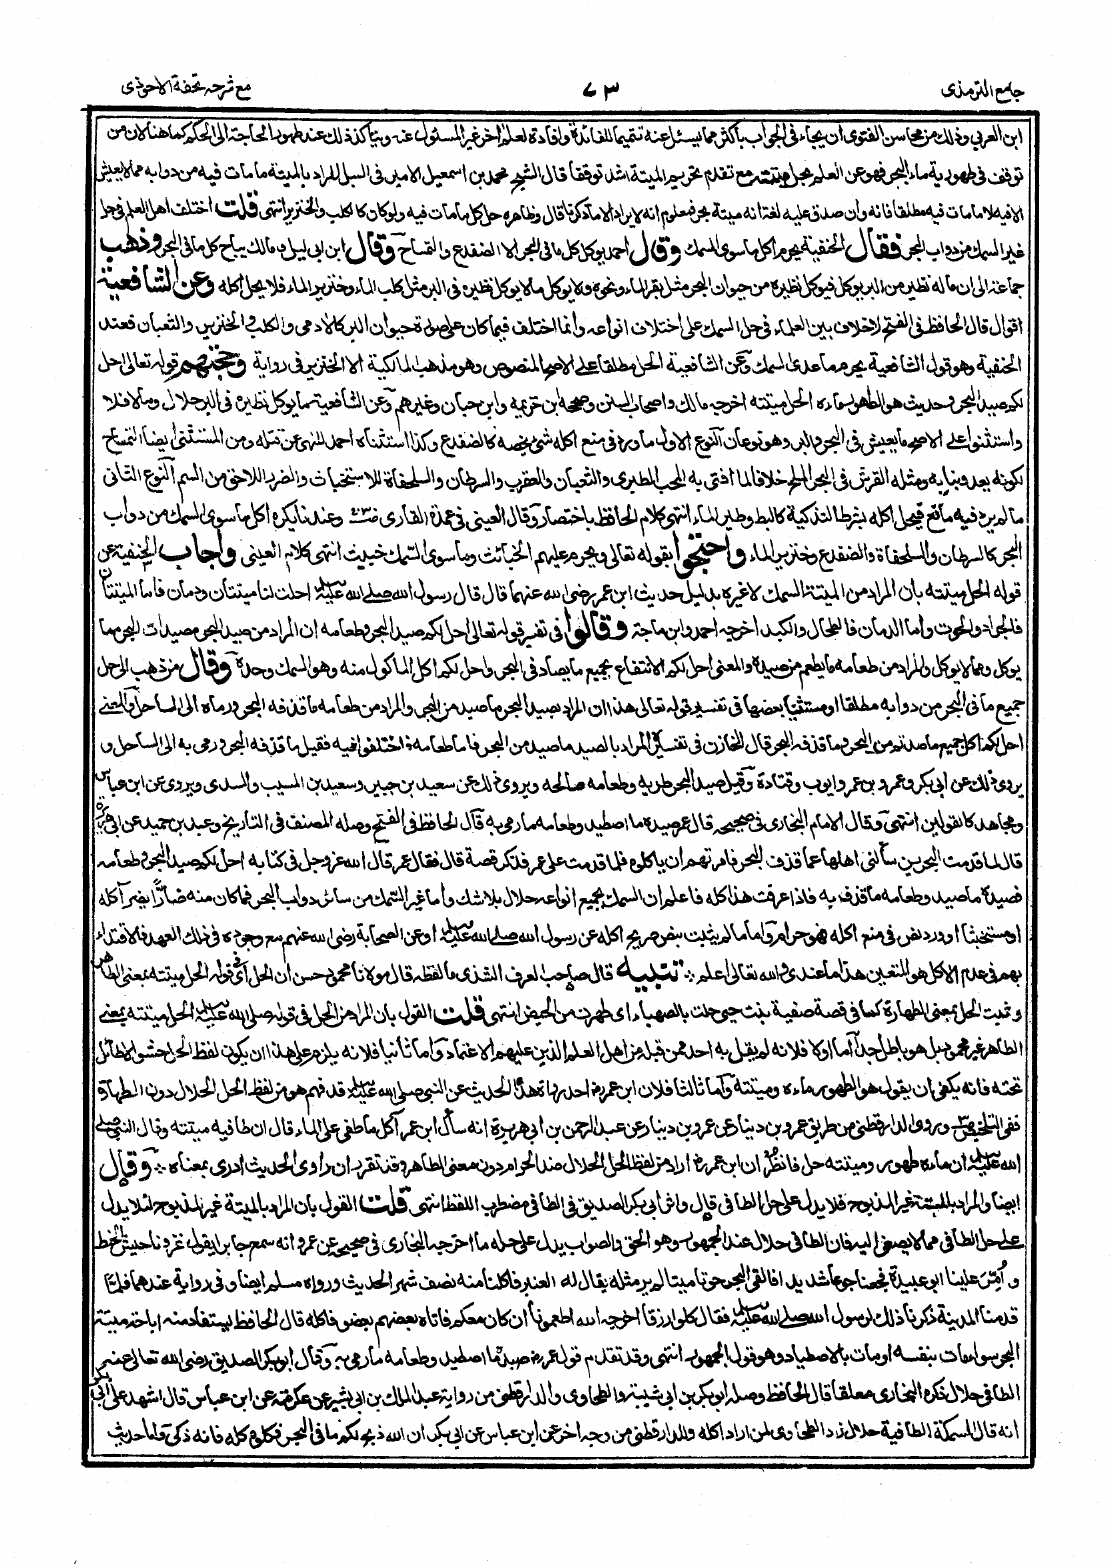 جامع الترمذى
٧٣
مع شرحه تحفة الاحوذى
ابن العربي وذلك من محاسن الفتوى ان يجاء فى الجواب باكثر مما يسئل عنه تتميما للفائدة وافادة لعلم اخر غير المسئول عنه ويتأكد ذلك عند ظهور الحاجة الى الحكم كما هنا لان من
توقف فى طهورية ماء البحر فهو عن العلم بحل ميتته مع تقدم تحريم الميتة اشد توقفا قال الشيخ محمد بن اسمعيل الامير فى السبل المراد بالميتة ما مات فيه من دوابه مما لا يعيش
الا فيه لا ما مات فيه مطلقا فانه وان صدق عليه لغة انه ميتة بحر فمعلوم انه لا يراد الا ما ذكرنا قال وظاهره حل كل ما مات فيه ولو كان كالكلب والخنزير انتهى قلت اختلف اهل العلم فى حل
غير السمك من دواب البحر فقال الحنفية يحرم اكل ما سوى السمك وقال احمد يوكل كل ما فى البحر الا الضفدع والتمساح وقال ابن ابى ليلى ومالك يباح كل ما فى البحر وذهب
جماعة الى ان ما له نظير من البر يوكل نظيره من حيوان البحر مثل بقر الماء ونحوه ولا يوكل ما لا يوكل نظيره فى البر مثل كلب الماء وخنزير الماء فلا يحل اكله وعن الشافعية
اقوال قال الحافظ فى الفتح لا خلاف بين العلماء فى حل السمك على اختلاف انواعه وانما اختلف فيما كان على صورة حيوان البر كالادمى والكلب والخنزير والثعبان فعند
الحنفية وهو قول الشافعية يحرم ما عدى السمك وعن الشافعية الحل مطلقا على الاصح المنصوص وهو مذهب المالكية الا الخنزير فى رواية وحجتهم قوله تعالى احل
لكم صيد البحر وحديث هو الطهور ماءه الحل ميتته اخرجه مالك واصحاب السنن وصححه ابن خزيمة وابن حبان وغيرهم وعن الشافعية ما يوكل نظيره فى البر حلال وما لا فلا
واستثنوا على الاصح ما يعيش فى البحر والبر وهو نوعان النوع الاول ما ورد فى منع اكله شئ يخصه كالضفدع وكذا استثناه احمد للنهى عن قتله ومن المستثنى ايضا التمساح
لكونه يعدو بنابه ومثله القرش فى البحر الملح خلافا لما افتى به المحب الطبرى والثعبان والعقرب والسرطان والسلحفاة للاستخباث والضرر اللاحق من السم النوع الثانى
ما لم يرد فيه مانع فيحل اكله بشرط التذكية كالبط وطير الماء انتهى كلام الحافظ باختصار وقال العينى فى عمدة القارى وعندنا يكره اكل ما سوى السمك من دواب
البحر كالسرطان والسلحفاة والضفدع وخنزير الماء واحتجوا بقوله تعالى ويحرم عليهم الخبائث وما سوى السمك خبيث انتهى كلام العينى واجاب الحنفية عن
قوله الحل ميتته بان المراد من الميتة السمك لا غيره بدليل حديث ابن عمر رضى الله عنهما قال قال رسول الله صلى الله عليه وسلم احلت لنا ميتتان ودمان فاما الميتتان
فالجراد والحوت واما الدمان فالطحال والكبد اخرجه احمد وابن ماجة وقالوا فى تفسير قوله تعالى احل لكم صيد البحر وطعامه ان المراد من صيد البحر مصيدات البحر مما
يوكل ومما لا يوكل والمراد من طعامه ما يطعم من صيده والمعنى احل لكم الانتفاع بجميع ما يصاد فى البحر واحل لكم اكل الماكول منه وهو السمك وحده وقال من ذهب الى حل
جميع ما فى البحر من دوابه مطلقا او مستثنيا بعضها فى تفسير قوله تعالى هذا ان المراد بصيد البحر ما صيد من البحر والمراد من طعامه ما قذفه البحر ورماه الى الساحل والمعنى
احل لكم اكل جميع ما صدتم من البحر وما قذفه البحر قال الخازن فى تفسيره المراد بالصيد ما صيد من البحر فاما طعامه فاختلفوا فيه فقيل ما قذفه البحر ورمى به الى الساحل و
يروى ذلك عن ابى بكر وعمر وبن عمر وايوب وقتادة وقيل صيد البحر طريه وطعامه مالحه ويروى ذلك عن سعيد بن جبير وسعيد بن المسيب والسدى ويروى عن ابن عباس
ومجاهد كالقولين انتهى وقال الامام البخارى فى صحيحه قال عمر صيده ما اصطيد وطعامه ما رمى به قال الحافظ فى الفتح وصله المصنف فى التاريخ وعبد بن حميد عن ابى هريرة
قال لما قدمت البحرين سألنى اهلها عما قذف البحر فامرتهم ان ياكلوه فلما قدمت على عمر فذكر قصة قال فقال عمر قال الله عز وجل فى كتابه احل لكم صيد البحر وطعامه
فصيده ما صيد وطعامه ما قذف به فاذا عرفت هذا كله فاعلم ان السمك بجميع انواعه حلال بلا شك واما غير السمك من سائر دواب البحر فما كان منه ضارًا يضر اكله
او مستخبثا او ورد نص فى منع اكله فهو حرام واما ما لم يثبت بنص صريح اكله عن رسول الله صلى الله عليه وسلم او عن الصحابة رضى الله عنهم مع وجوده فى ذلك العهد فالاقتداء
بهم فى عدم الاكل هو المتعين هذا ما عندى والله تعالى اعلم تنبيه قال صاحب العرف الشذى ما لفظه قال مولانا محمود حسن ان الحل فى قوله الحل ميتته بمعنى الطاهر
وثبت الحل بمعنى الطهارة كما فى قصة صفية بنت حيى حلت بالصهباء اى طهرت من الحيض انتهى قلت القول بان المراد من الحل فى قوله صلى الله عليه وسلم الحل ميتته بمعنى
الطاهر غير محمود بل هو باطل جدا اما اولا فلانه لم يقل به احد ممن قبله من اهل العلم الذين عليهم الاعتماد واما ثانيا فلانه يلزم على هذا ان يكون لفظ الحل حشوا لا طائل
تحته فانه يكفى ان يقول هو الطهور ماءه وميتته واما ثالثا فلان ابن عمر احد رواة هذا الحديث عن النبى صلى الله عليه وسلم قد فهم هو من لفظ الحل الحلال دون الطهارة
ففى التلخيص وروى الدارقطنى من طريق عمرو بن دينار عن عبد الرحمن بن ابى هريرة انه سأل ابن عمر آكل ما طفى على الماء قال ان طافيه ميتته وقال النبى صلى
الله عليه وسلم ان ماءه طهور وميتته حل فانظر ان ابن عمر اراد من لفظ الحل الحلال ضد الحرام دون معنى الطاهر وقد تقرر ان راوى الحديث ادرى بمعناه وقال
ايضا والمراد بالميتة غير المذبوح فلا يدل على حل الطافى قال واثر ابى بكر الصديق فى الطافى مضطرب اللفظ انتهى قلت القول بان المراد بالميتة غير المذبوح لئلا يدل
على حل الطافى مما لا يصغى اليه فان الطافى حلال عند الجمهور وهو الحق والصواب يدل على حله ما اخرجه البخارى فى صحيحه عن عمرو انه سمع جابرا يقول غزونا جيش الخبط
و أُمِّرَ علينا ابو عبيدة فجعنا جوعا شديدا فالقى البحر حوتا ميتا لم ير مثله يقال له العنبر فاكلنا منه نصف شهر الحديث ورواه مسلم ايضا وفى رواية عندهما فلما
قدمنا المدينة ذكرنا ذلك لرسول الله صلى الله عليه وسلم فقال كلوا رزقا اخرجه الله اطعمونا ان كان معكم فاتاه بعضهم بعضو فاكله قال الحافظ يستفاد منه اباحة ميتة
البحر سواء مات بنفسه او مات بالاصطياد وهو قول الجمهور انتهى وقد تقدم قول عمر صيده ما اصطيد وطعامه ما رمى به وقال ابو بكر الصديق رضى الله تعالى عنه
الطافى حلال ذكره البخارى معلقا قال الحافظ وصله ابو بكر بن ابى شيبة والطحاوى والدارقطنى من رواية عبد الملك بن ابى بشير عن عكرمة عن ابن عباس قال اشهد على ابى بكر
انه قال السمكة الطافية حلال زاد الطحاوى لمن اراد اكله والدارقطنى من وجه اخر عن ابن عباس عن ابى بكر ان الله ذبح لكم ما فى البحر فكلوه كله فانه ذكى واما حديث